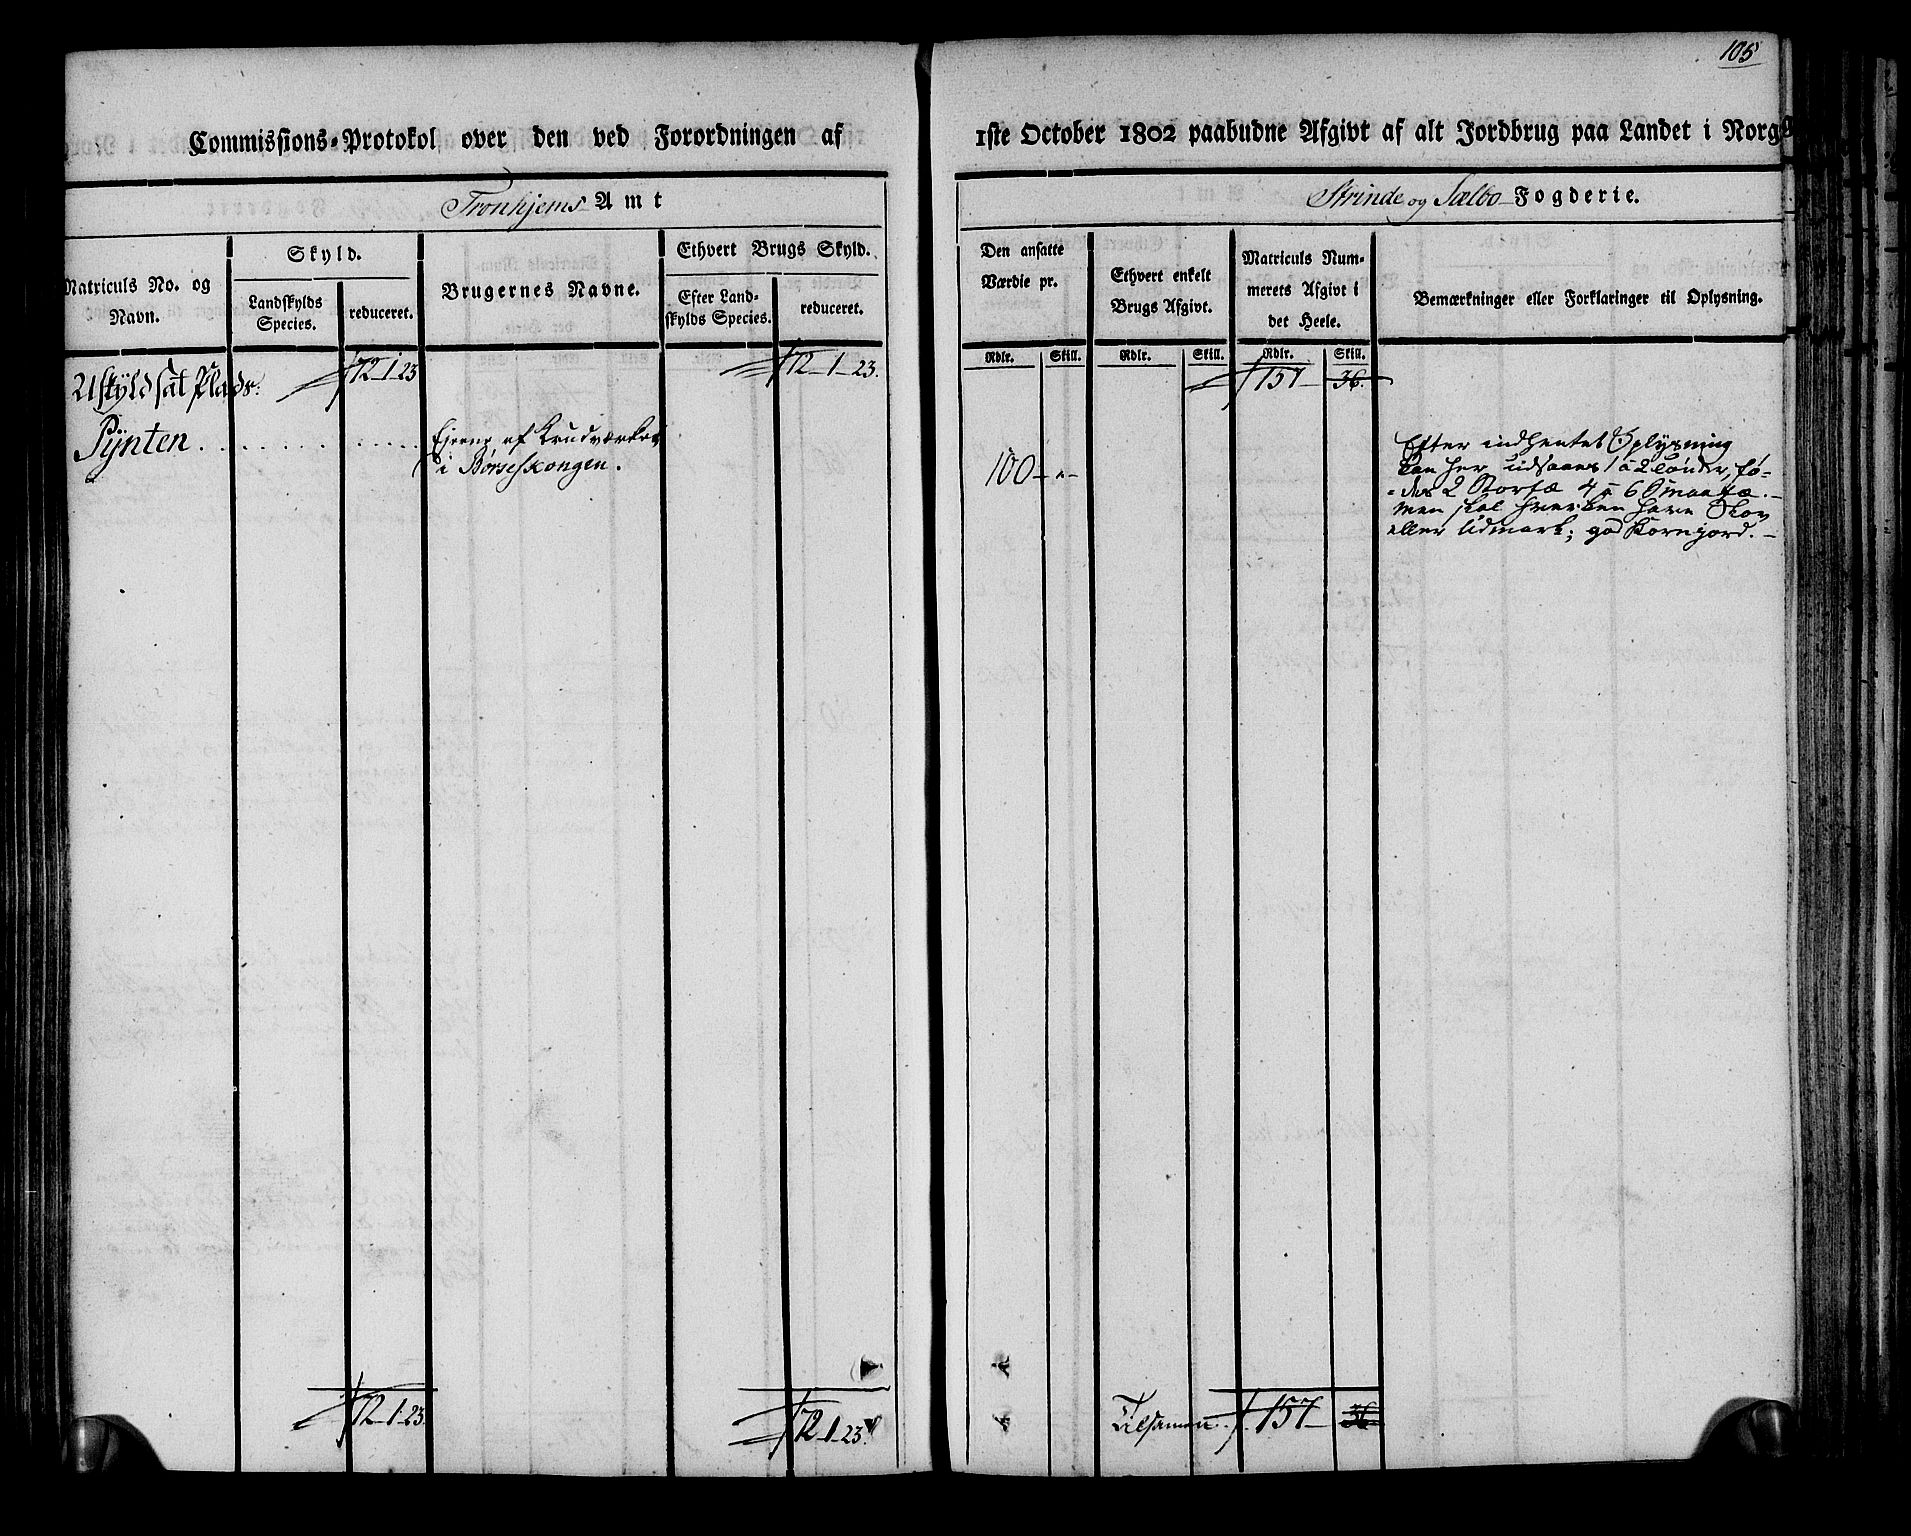 105
Commissions-Protokol over den ved Forordningen af 1ste October 1802 paabudne Afgivt af alt Jordbrug paa Landet i Norg
Tronhjems Amt
Strinde og Sælbo Fogderie.
Matriculs No. og
Navn.
Skyld.
Landskylds
Species.
reduceret.
Brugernes Navne.
Ethvert Brugs Skyld.
Efter Land-
skylds Species.
reduceret.
Den ansatte
Værdie pr.
Rdlr. Skill.
Ethvert enkelt
Brugs Afgivt.
Rdlr. Skill.
Matriculs Num-
merets Afgivt i
det Heele.
Rdlr. Skill.
Bemærkninger eller Forklaringer til Oplysning.
72-1-23 72-1-23. 157 36.
Uskyldsat Plads:
Pÿnten . . . . . . . . . . . . Ejerne af Krudværket
i Børseskongen.
100 - " -
Efter indhentet Oplysning
kan her udsaaes 1 a 2 Tønder, fø-
-des 2 Storfæ 4 a 6 Smaafæ. -
men skal hverken have Skov
eller Udmark; god Kornjord. -
72-1-23 72-1-23 Tilsamen 157 36